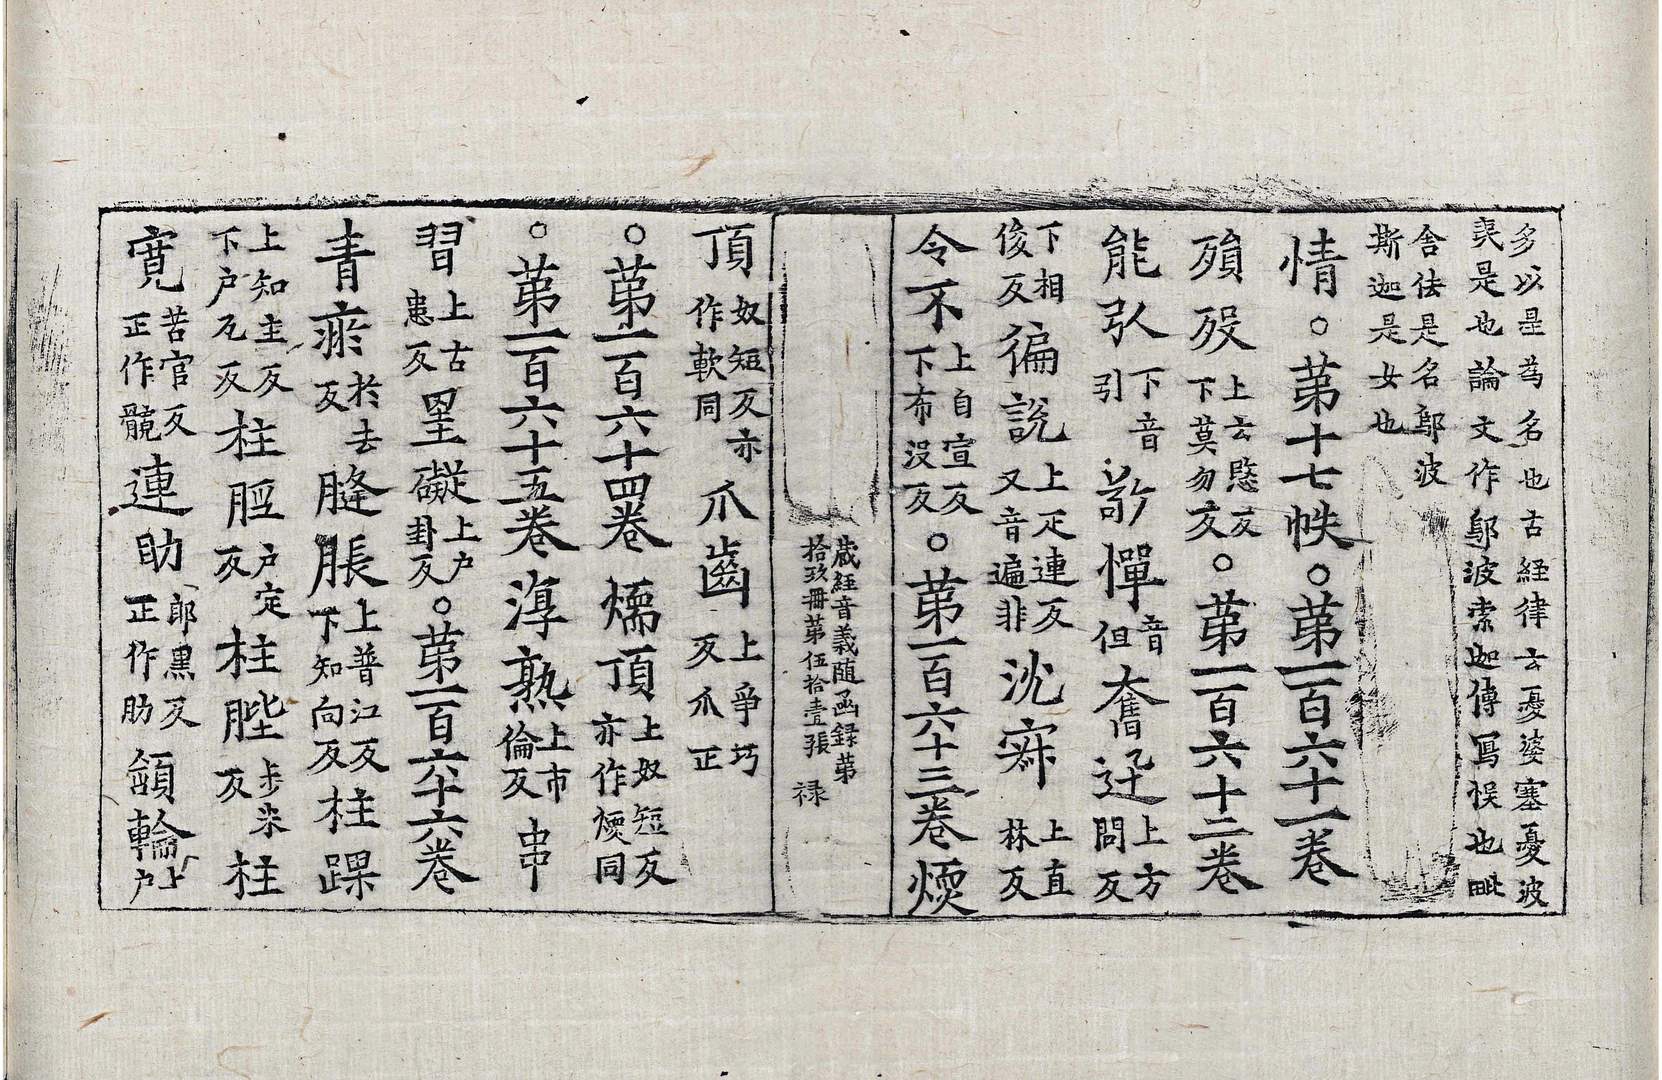 多以是為名也古経律云憂婆塞憂波
裘是也論文作鄔波索迦傳寫悮也毗
舍佉是名鄔波
斯迦是女也
情○第十七帙○第一百六十一卷
殞歿上云愍反下莫勿反○第一百六十二卷
能引下音引 憚音但奮迅上方問反
下相俊反徧說上疋連反又音遍非沈寐上直林反
令不上自宣反下布沒反○第一百六十三卷煗
蔵経音義随函録第
拾玖冊第伍拾壹張 禄
頂奴短反亦作軟同爪齒上爭巧反爪正
○第一百六十四卷㬉頂上奴短反亦作煗同
○第一百六十五卷淳熟上市倫反串
習上古患反罣礙上户卦反○第一百六十六卷
青瘀於去反膖脹上普江反下知向反柱踝
上知主反下户瓦反柱脛户定反柱䏶步米反柱
寬苦官反正作髖連肋郎黒反正作肋頷輪上户